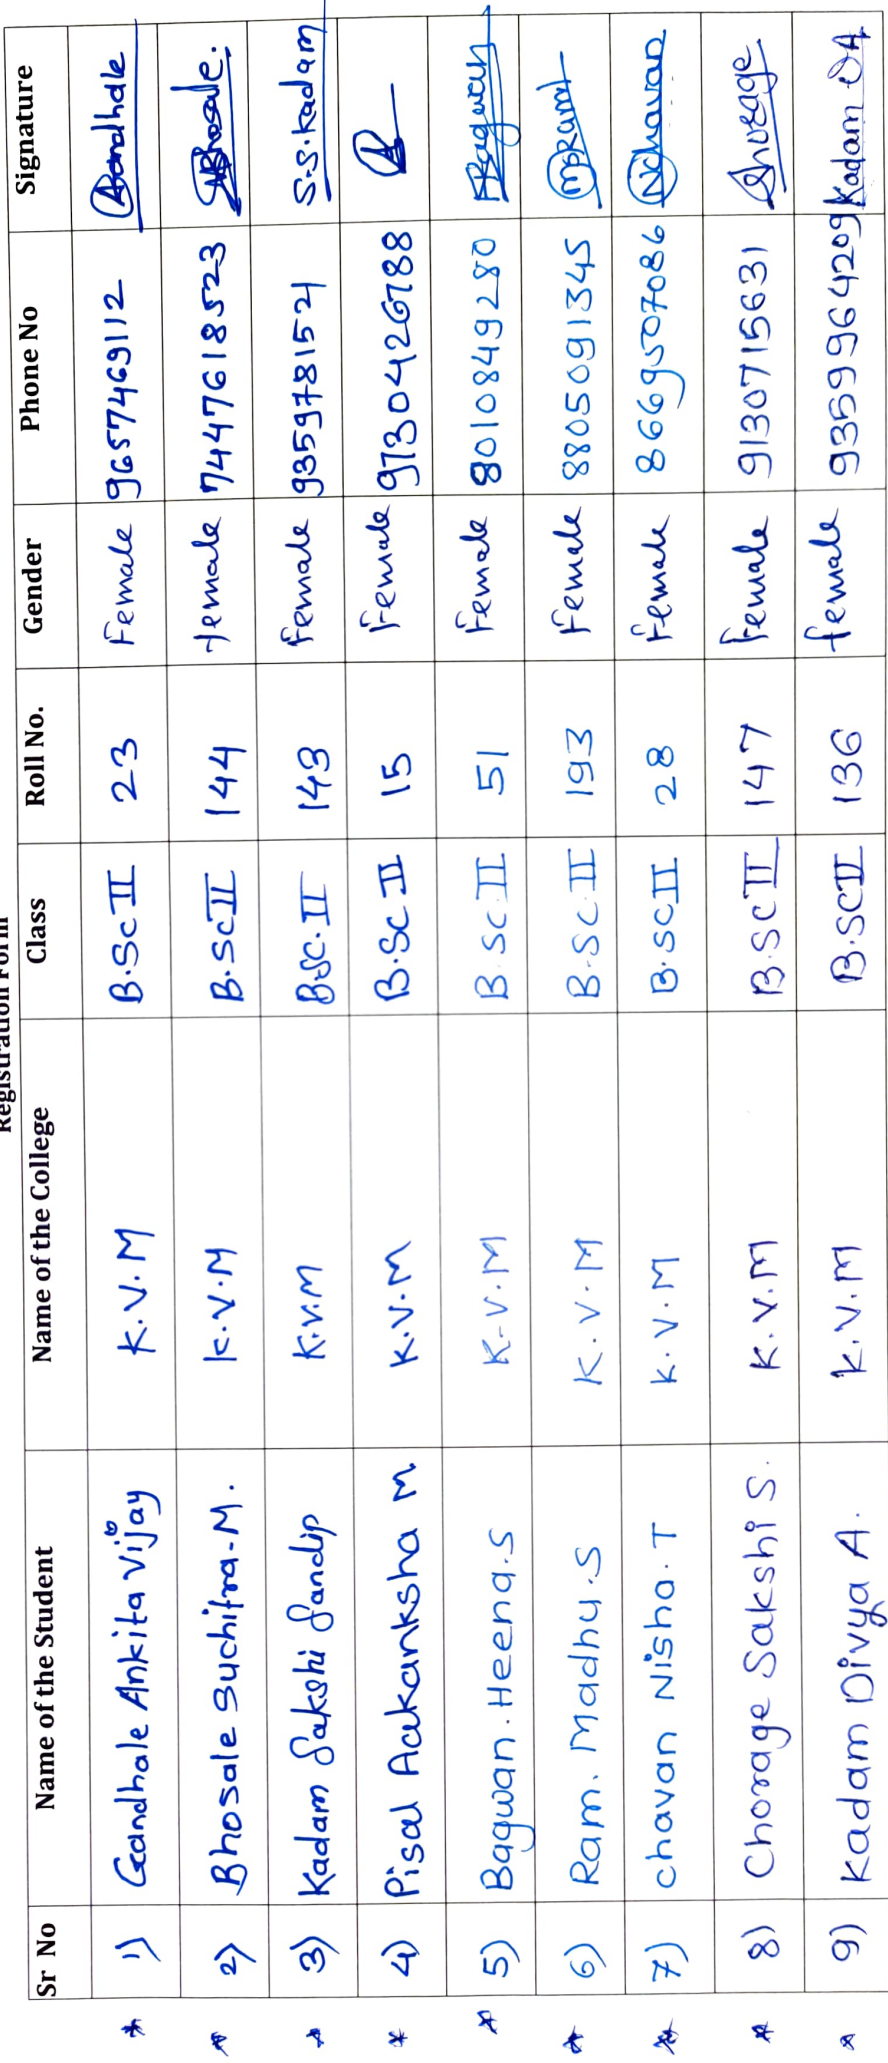 Registration Form
Sr No Name of the Student Name of the College Class Roll No. Gender Phone No Signature
* 1) Gandhale Ankita Vijay K.V.M B.Sc II 23 Female 9657469112 Gandhale
* 2) Bhosale Suchitra.M. K.V.M B.Sc II 144 female 7447618523 Bhosale.
* 3) Kadam Sakshi Sandip K.V.M B.Sc. II 143 Female 9359781521 S.S.Kadam
* 4) Pisal Aakanksha M. K.V.M B.Sc II 15 Female 9730426788
* 5) Bagwan. Heena.S K.V.M B.Sc II 51 Female 8010849280 Bagwan
* 6) Ram. Madhu.S K.V.M B.Sc. II 193 Female 8805091345
* 7) chavan Nisha.T K.V.M B.SC II 28 Female 8669507086 Nchavan
* 8) Chorage Sakshi S. K.V.M B.SC II 147 Female 9130715631 Chorage
* 9) Kadam Divya A. K.V.M B.SC II 136 female 9359964209 Kadam DA